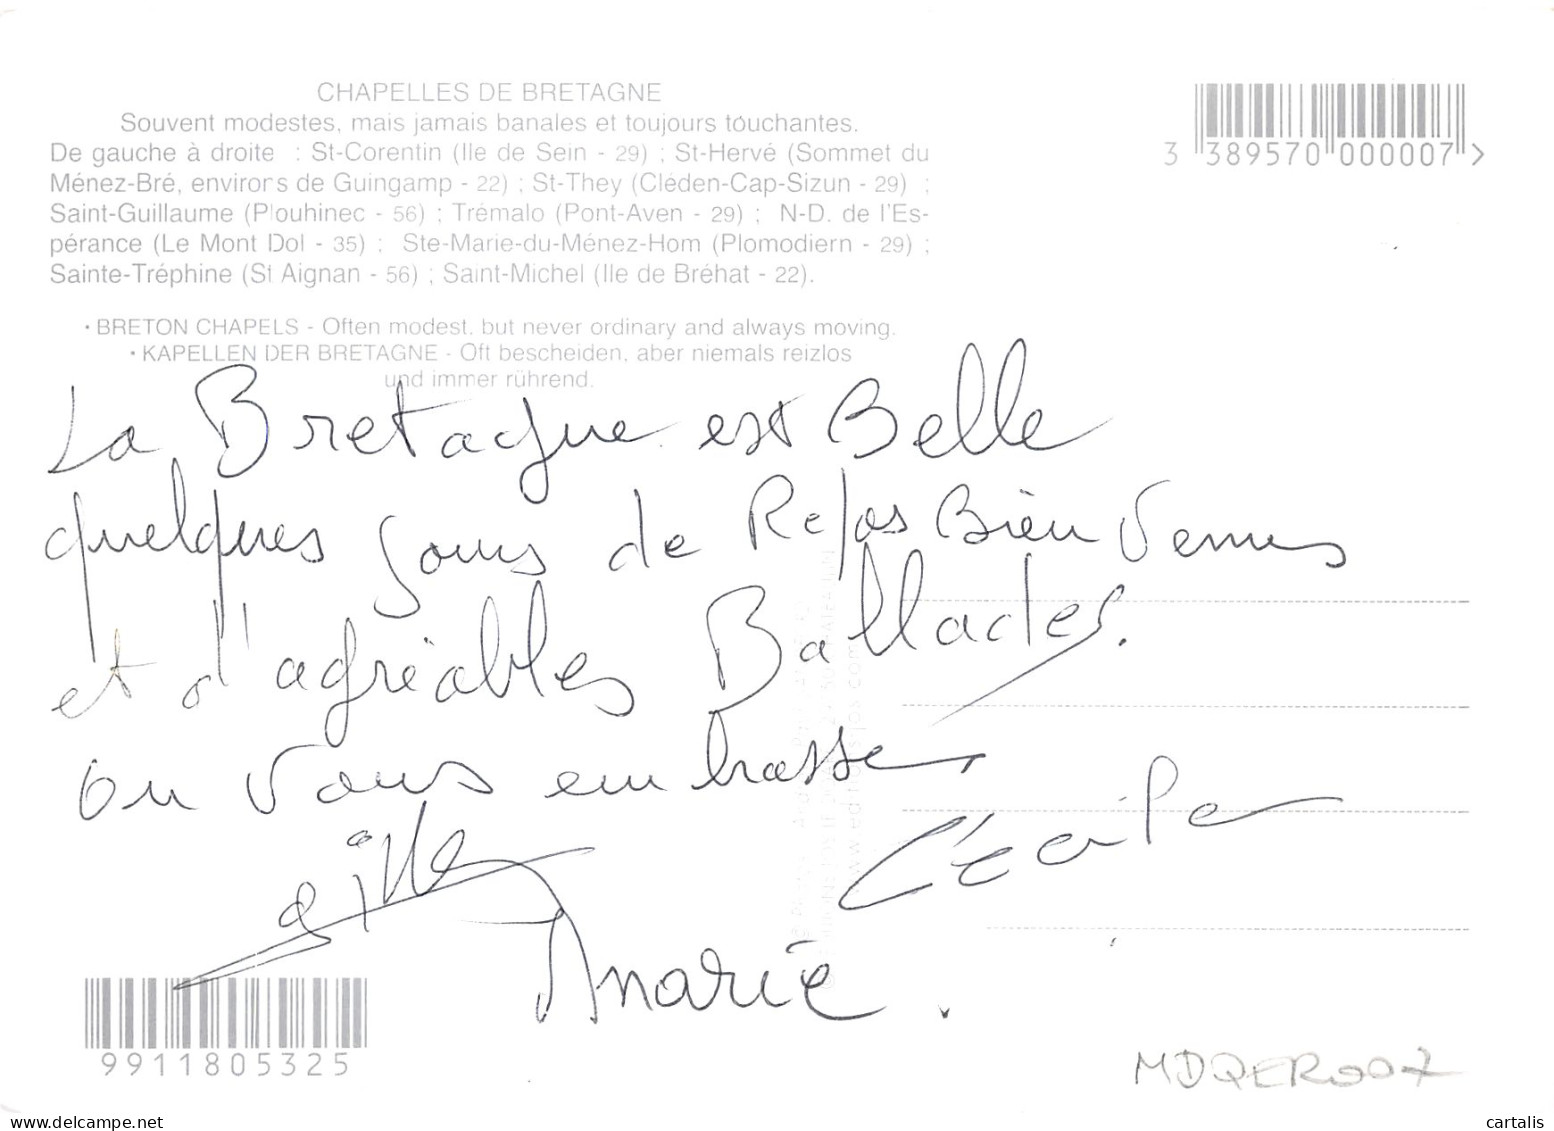 CHAPELLES DE BRETAGNE
Souvent modestes, mais jamais banales et toujours touchantes.
De gauche à droite : St-Corentin (Ile de Sein - 29) ; St-Hervé (Sommet du
Ménez-Bré, environs de Guingamp - 22) ; St-They (Cléden-Cap-Sizun - 29) ;
Saint-Guillaume (Plouhinec - 56) ; Trémalo (Pont-Aven - 29) ; N-D. de l'Es-
pérance (Le Mont Dol - 35) ; Ste-Marie-du-Ménez-Hom (Plomodiern - 29) ;
Sainte-Tréphine (St Aignan - 56) ; Saint-Michel (Ile de Bréhat - 22).
• BRETON CHAPELS - Often modest, but never ordinary and always moving.
• KAPELLEN DER BRETAGNE - Oft bescheiden, aber niemals reizlos
und immer rührend.
3 389570 000007 >
La Bretagne est Belle
quelques jours de Repos Bien Venus
et d'agréables Ballades.
on vous embrasse,
gilles
Cécile
Marie.
9911805325
MDQER007
cartalis